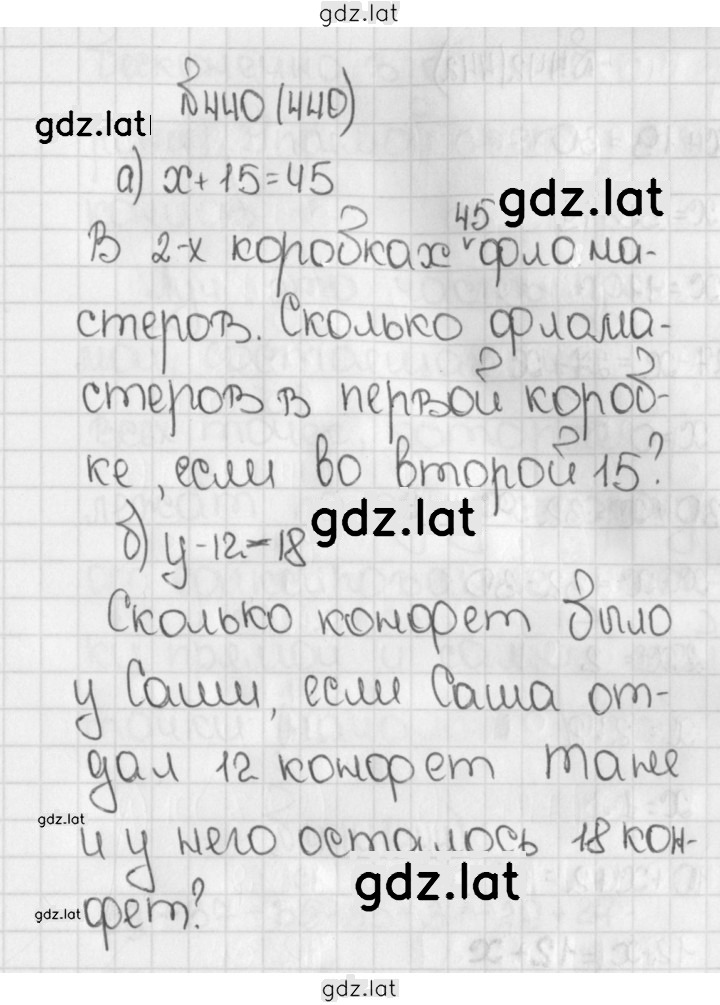 gdz.lat
№440 (440)
gdz.lat
а) x + 15 = 45
gdz.lat
45
В 2-х коробках v флома-
стеров. Сколько флама-
стеров в первой короб-
ке, если во второй 15?
gdz.lat
б) y - 12 = 18
Сколько конфет было
у Саши, если Саша от-
дал 12 конфет Тане
gdz.lat
и у него осталось 18 кон-
gdz.lat
gdz.lat
фет?
gdz.lat